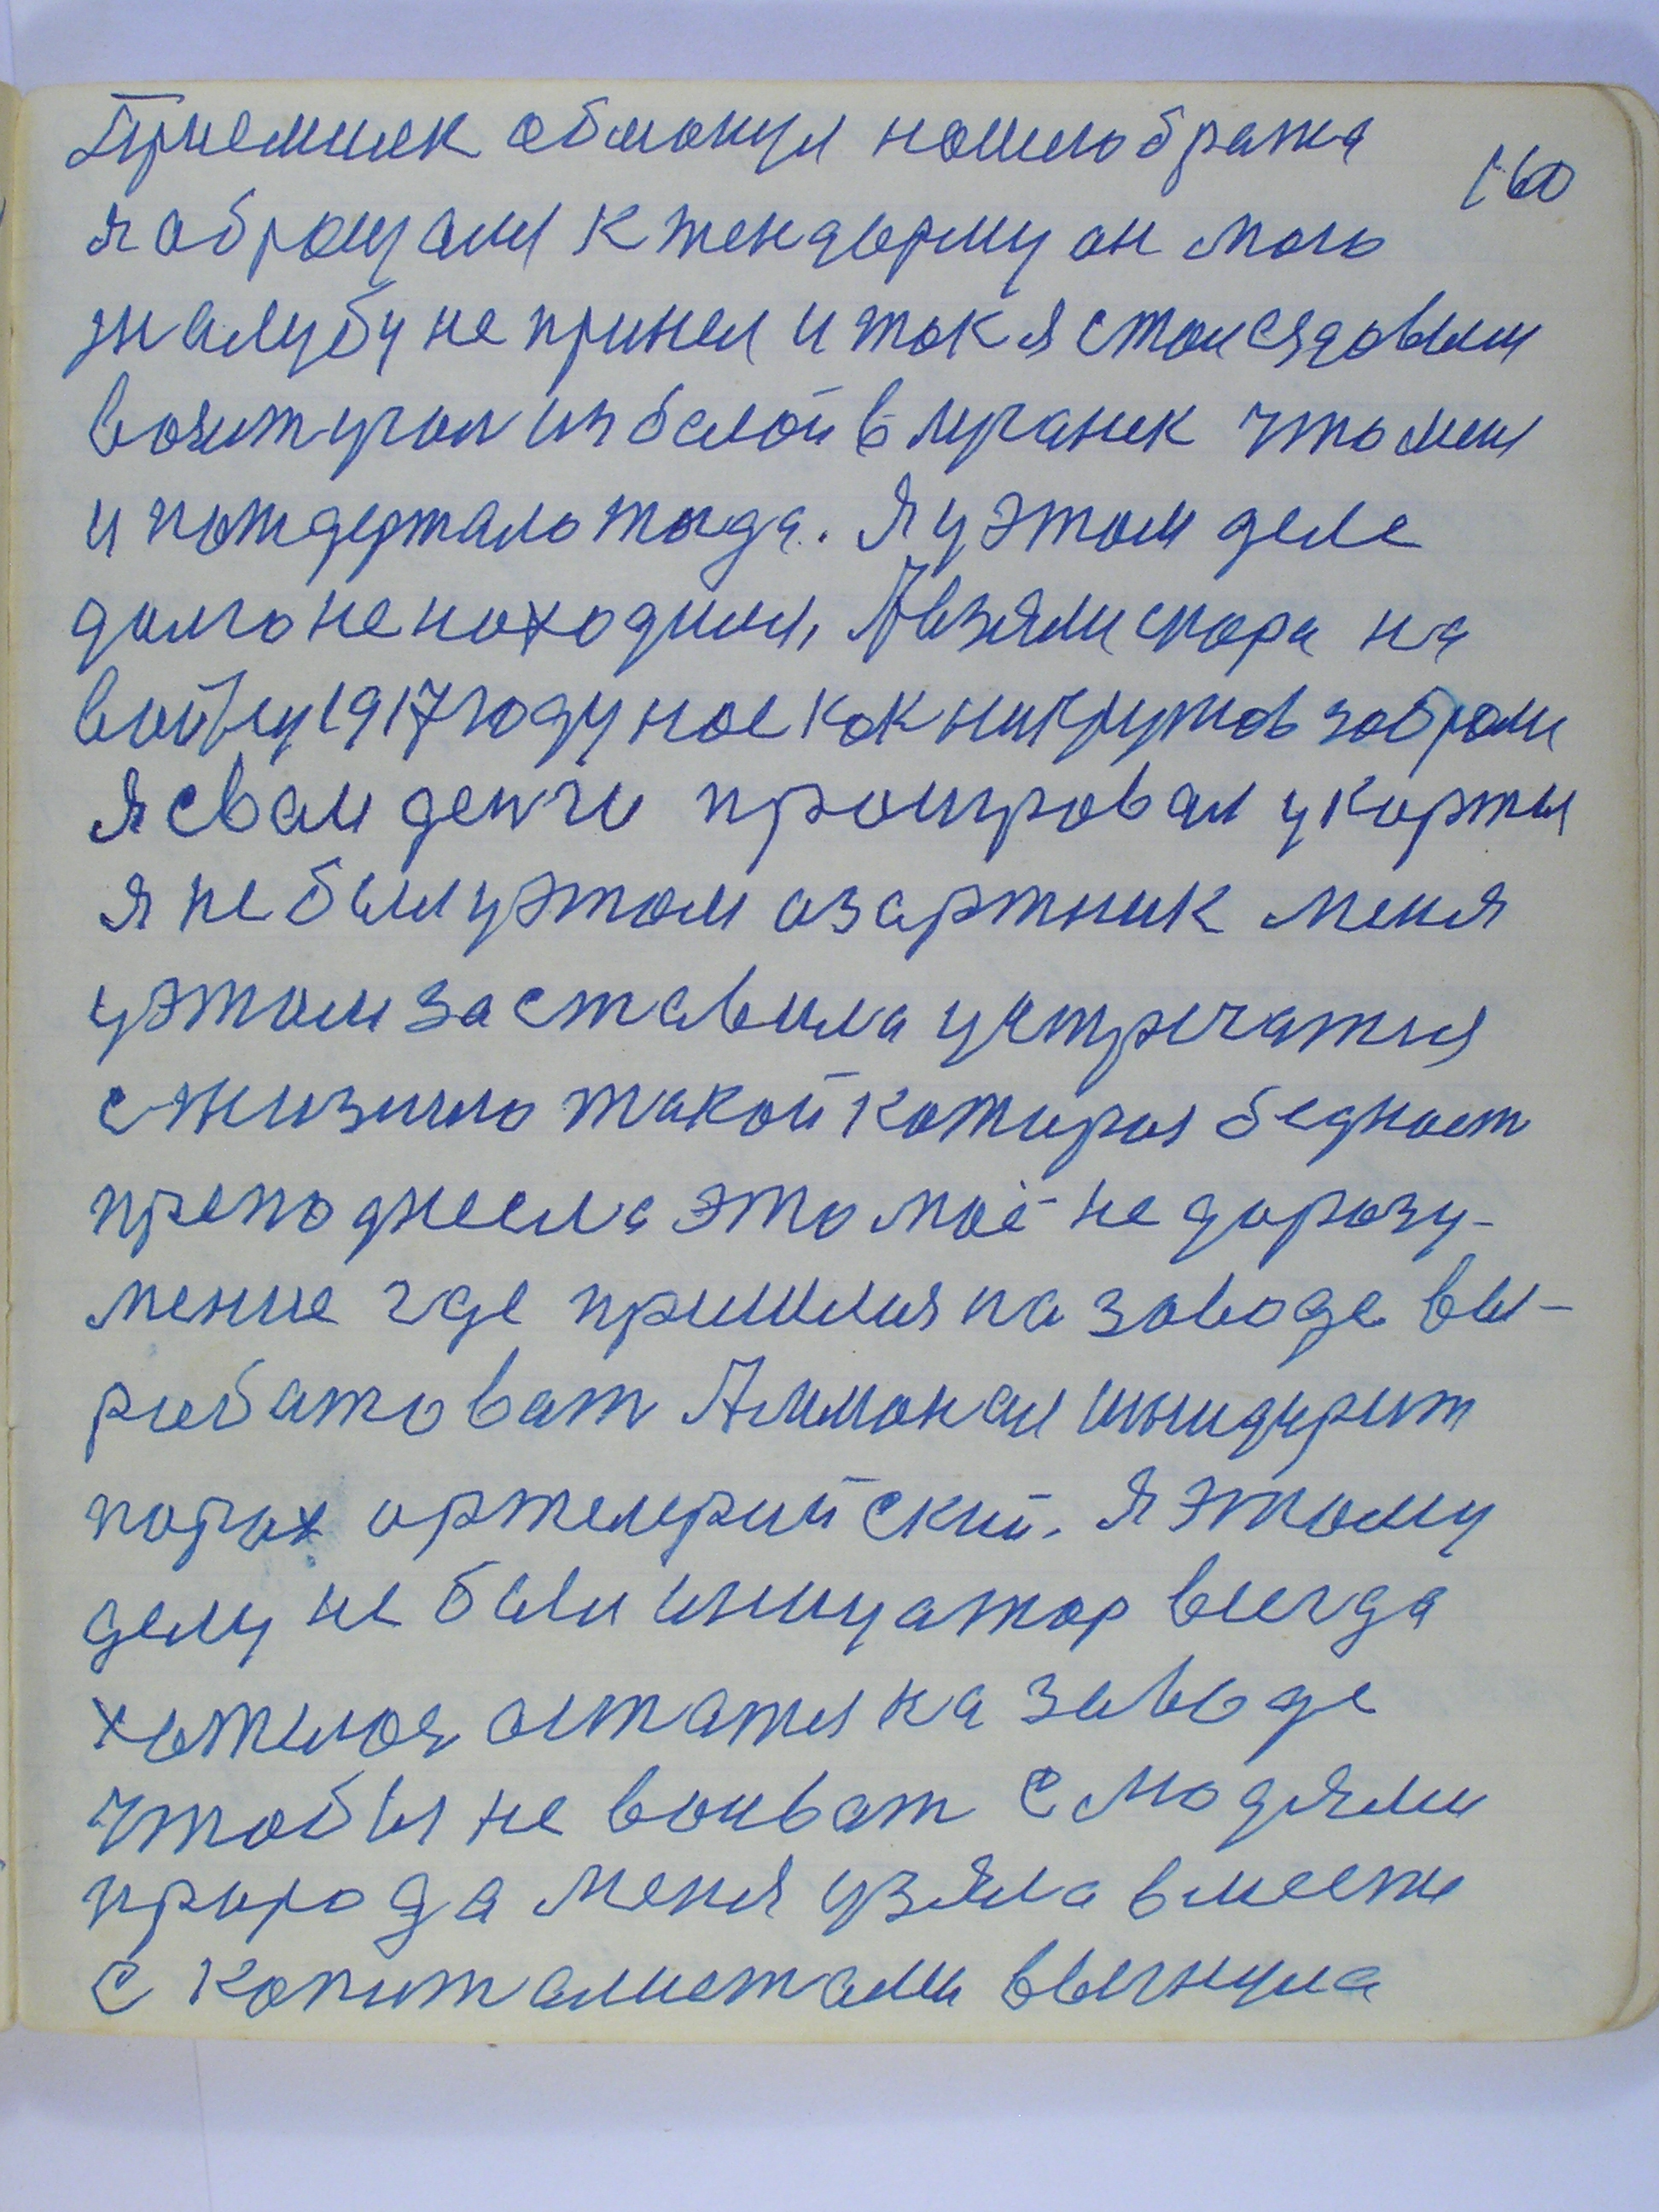 Приемщик обманул нашего брата
160
я обращался к жендарму он мою
жалубу не принел и так я стал сядовым
возит угол из белой в луганск что мене
и пождержало тогда. Я у этом деле
долго не находился, А взяли скора на
войну 1917 году нас как никрутов забрали
я свои денги проигровал у карты
я не был у этом азартник меня
у этом заставила устречатся
с жизнию такой которая бедност
преподнесла это моё недоразу-
мение где пришлося на заводе вы-
рабатоват Аммонал шнидирит
порох артелерийский. Я этому
делу не был иницатор всегда
хотелося остатся на заводе
чтобы не воиват с людями
природа меня узяла вместе
с капиталистами выгнула